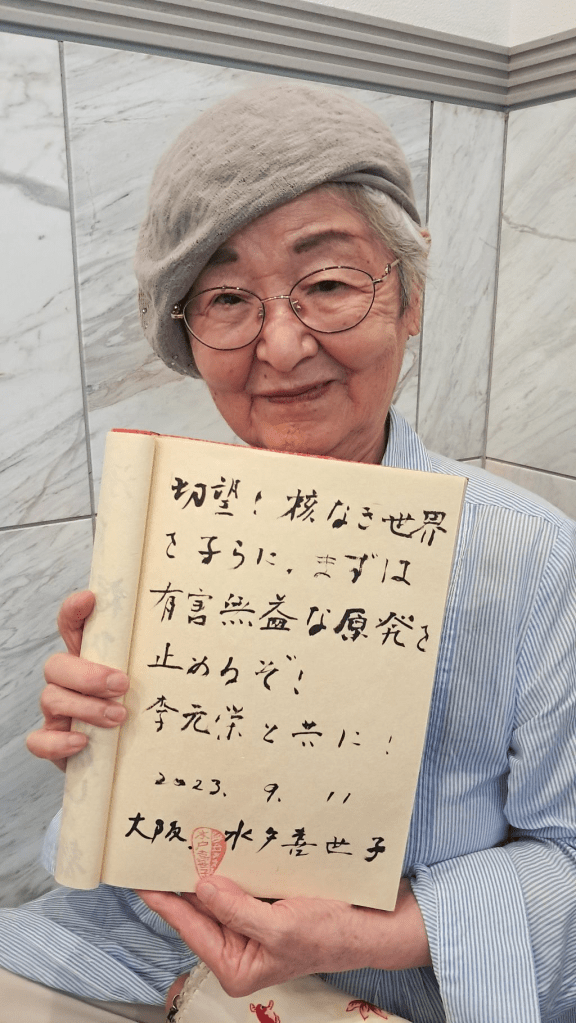 切望！核なき世界
を子らに。まずは
有害無益な原発を
止めるぞ！
李元栄と共に！
2023. 9. 11
大阪. 水戸喜世子